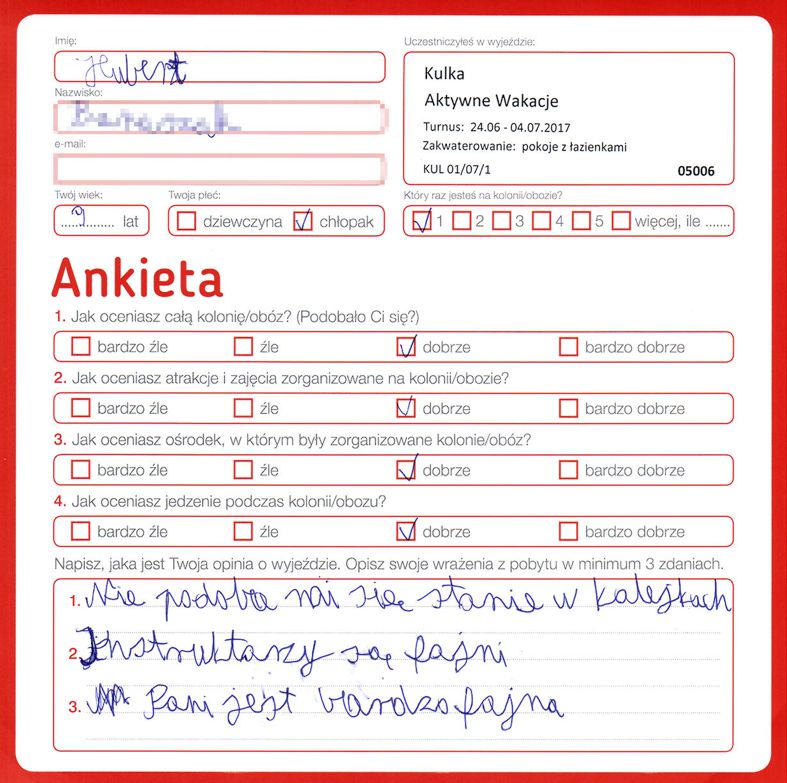 Imię:
Hubert
Nazwisko:
e-mail:
Twój wiek:
9 lat
Twoja płeć:
dziewczyna chłopak
Uczestniczyłeś w wyjeździe:
Kulka
Aktywne Wakacje
Turnus: 24.06 - 04.07.2017
Zakwaterowanie: pokoje z łazienkami
KUL 01/07/1 05006
Który raz jesteś na kolonii/obozie?
1 2 3 4 5 więcej, ile .......
Ankieta
1. Jak oceniasz całą kolonię/obóz? (Podobało Ci się?)
bardzo źle źle dobrze bardzo dobrze
2. Jak oceniasz atrakcje i zajęcia zorganizowane na kolonii/obozie?
bardzo źle źle dobrze bardzo dobrze
3. Jak oceniasz ośrodek, w którym były zorganizowane kolonie/obóz?
bardzo źle źle dobrze bardzo dobrze
4. Jak oceniasz jedzenie podczas kolonii/obozu?
bardzo źle źle dobrze bardzo dobrze
Napisz, jaka jest Twoja opinia o wyjeździe. Opisz swoje wrażenia z pobytu w minimum 3 zdaniach.
1. Nie podoba mi się stanie w kolejkach
2. Instruktarzy są fajni
3. Pani jest bardzo fajna